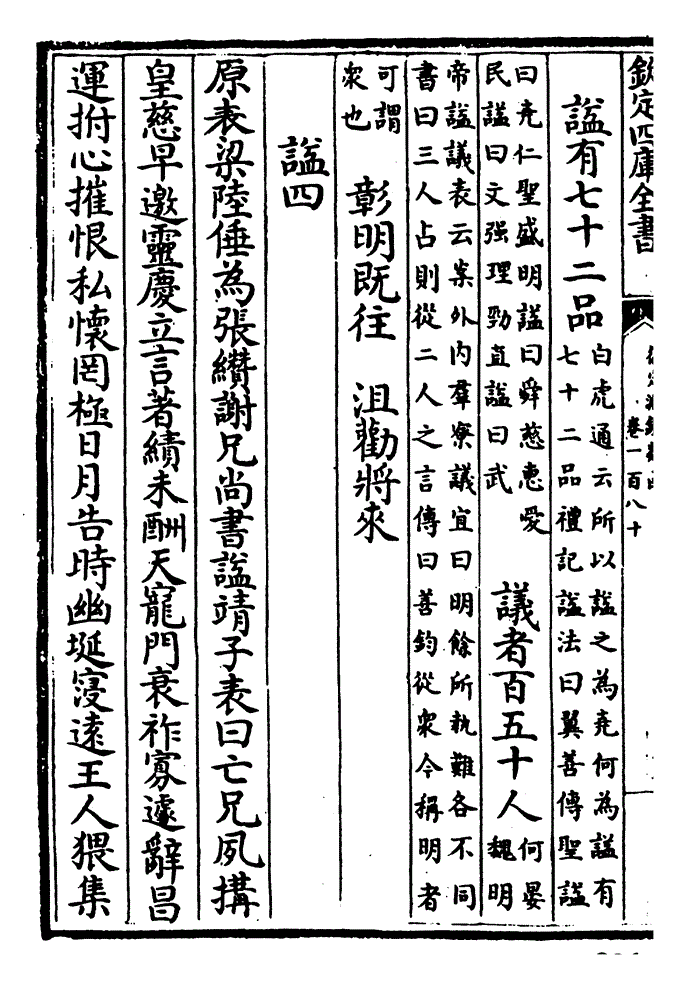 欽定四庫全書
卷一百八十
諡有七十二品
白虎通云所以諡之為堯何為諡有
七十二品禮記諡法曰翼善傳聖諡
曰堯仁聖盛明諡曰舜慈惠愛
民諡曰文强理勁直諡曰武
議者百五十人
何晏
魏明
帝諡議表云案外内羣寮議宜曰明餘所執難各不同
書曰三人占則從二人之言傳曰善鈞從衆今稱明者
可謂
衆也
彰明既往　沮勸將來
諡四
原表梁陸倕為張纘謝兄尚書諡靖子表曰亡兄夙搆
皇慈早邀靈慶立言著績未酬天寵門衰祚寡遽辭昌
運拊心摧恨私懷罔極日月告時幽埏寖遠王人猥集